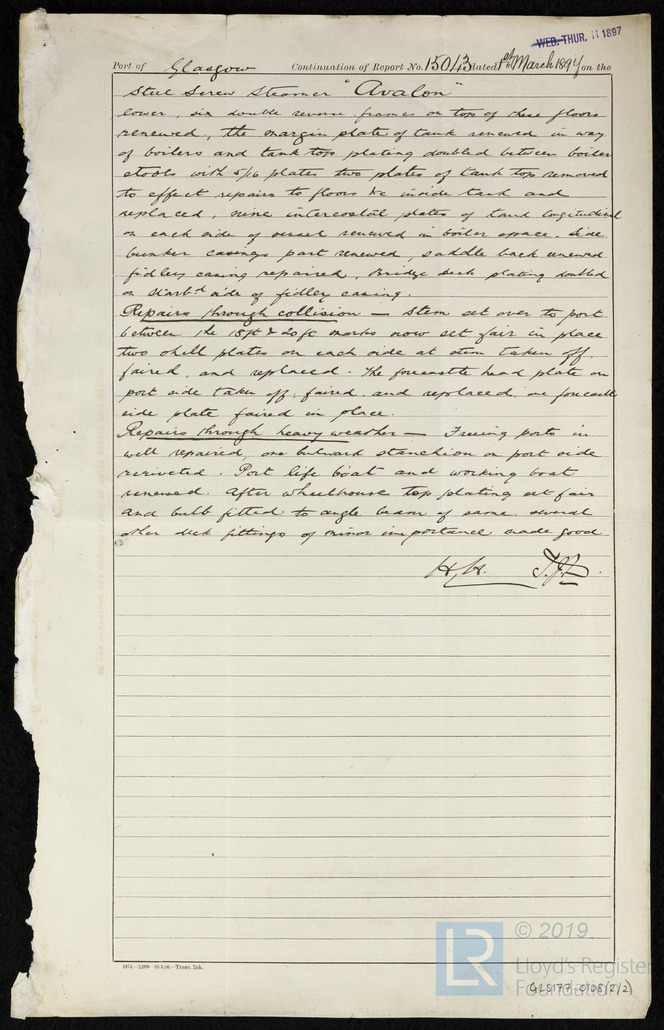 WED. THUR. 11 1897
Port of Glasgow Continuation of Report No. 15043 dated 1st March 1897 on the
Steel Screw Steamer "Avalon"
lower, six double reverse frames on top of these floors
renewed, the margin plate of tank renewed in way
of boilers and tank top plating doubled between boiler
stools with 5/16 plates two plates of tank top removed
to effect repairs to floors &c inside tank and
replaced, nine intercostal plates of tank longitudinal
on each side of vessel renewed in boiler space. Side
bunker casings part renewed, saddle back renewed
fidley casing repaired, Bridge deck plating doubled
on starbd side of fidley casing.
Repairs through collision — Stem set over to port
between the 18 ft & 20 ft marks now set fair in place
two shell plates on each side at stem taken off
faired, and replaced. The forecastle head plate on
port side taken off, faired, and replaced, one forecastle
side plate faired in place.
Repairs through heavy weather — Freeing ports in
well repaired, one bulwark stanchion on port side
reriveted. Port life boat and working boat
renewed. After wheelhouse top plating set fair
and bulb fitted to angle beam of same. several
other deck fittings of minor importance made good
H.H. T.J.D.
1874.—2,000—10/4/96.—Trans. Ink.
LR
© 2019
Lloyd's Register
Foundation
GLS177-0108(2/2)